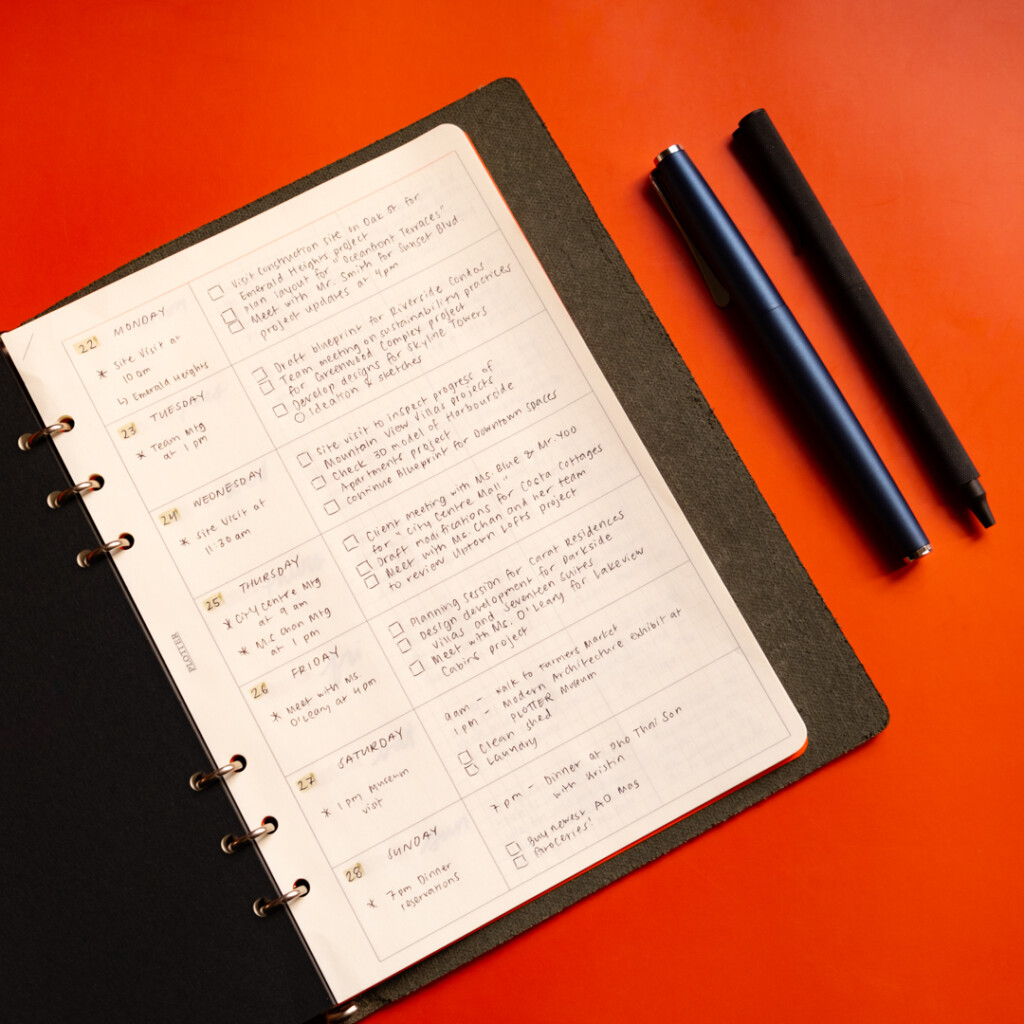 22 MONDAY
* Site Visit at
10 am
↳ Emerald Heights
☐ Visit Construction site on Oak st. for
Emerald Heights project
☐ Plan layout for "Oceanfront Terraces"
☐ Meet with Mr. Smith for Sunset Blvd
project updates at 4pm
23 TUESDAY
* Team Mtg
at 1 pm
☐ Draft blueprint for Riverside Condos
☐ Team meeting on sustainability practices
for Greenwood Complex project
☐ Develop designs for Skyline Towers
○ Ideation & sketches
24 WEDNESDAY
* Site Visit at
11:30 am
☐ Site visit to inspect progress of
Mountain View Villas projects
☐ Check 3D model of Harbourside
Apartments project
☐ Continue Blueprint for Downtown Spaces
25 THURSDAY
* City Centre Mtg
at 9 am
* Ms. Chan Mtg
at 1 pm
☐ Client meeting with Ms. Blue & Mr. Yoo
for "City Centre Mall"
☐ Draft modifications for Costa Cottages
☐ Meet with Ms. Chan and her team
to review Uptown Lofts project
26 FRIDAY
* Meet with Ms.
O'Leary at 4pm
☐ Planning session for Carat Residences
☐ Design development for Parkside
Villas and Seventeen Suites
☐ Meet with Ms. O'Leary for Lakeview
Cabins project
27 SATURDAY
* 1 pm Museum
visit
9am - Walk to Farmers Market
1pm - Modern Architecture exhibit at
PLOTTER Museum
☐ Clean shed
☐ Laundry
28 SUNDAY
* 7pm Dinner
reservations
7pm - Dinner at Pho Thai Son
with Kristin
☐ Buy newest AD Mag
☐ Groceries!
PLOTTER